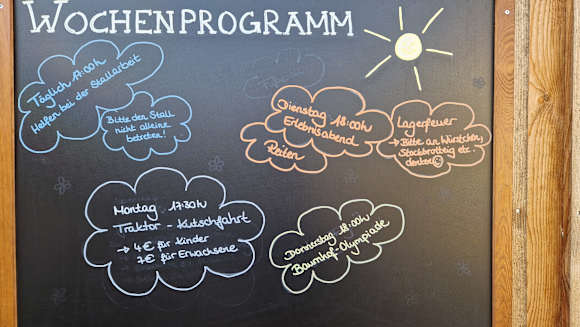 WOCHENPROGRAMM
Täglich 17:00h
Helfen bei der Stallarbeit
Bitte den Stall
nicht alleine
betreten!
Dienstag 18:00h
Erlebnisabend
Reiten
Lagerfeuer
→ Bitte an Würstchen,
Stockbrotteig etc.
denken☺
Montag 17:30h
Traktor - Kutschfahrt
→ 4€ für Kinder
7€ für Erwachsene
Donnerstag 18:00h
Baumhof-Olympiade